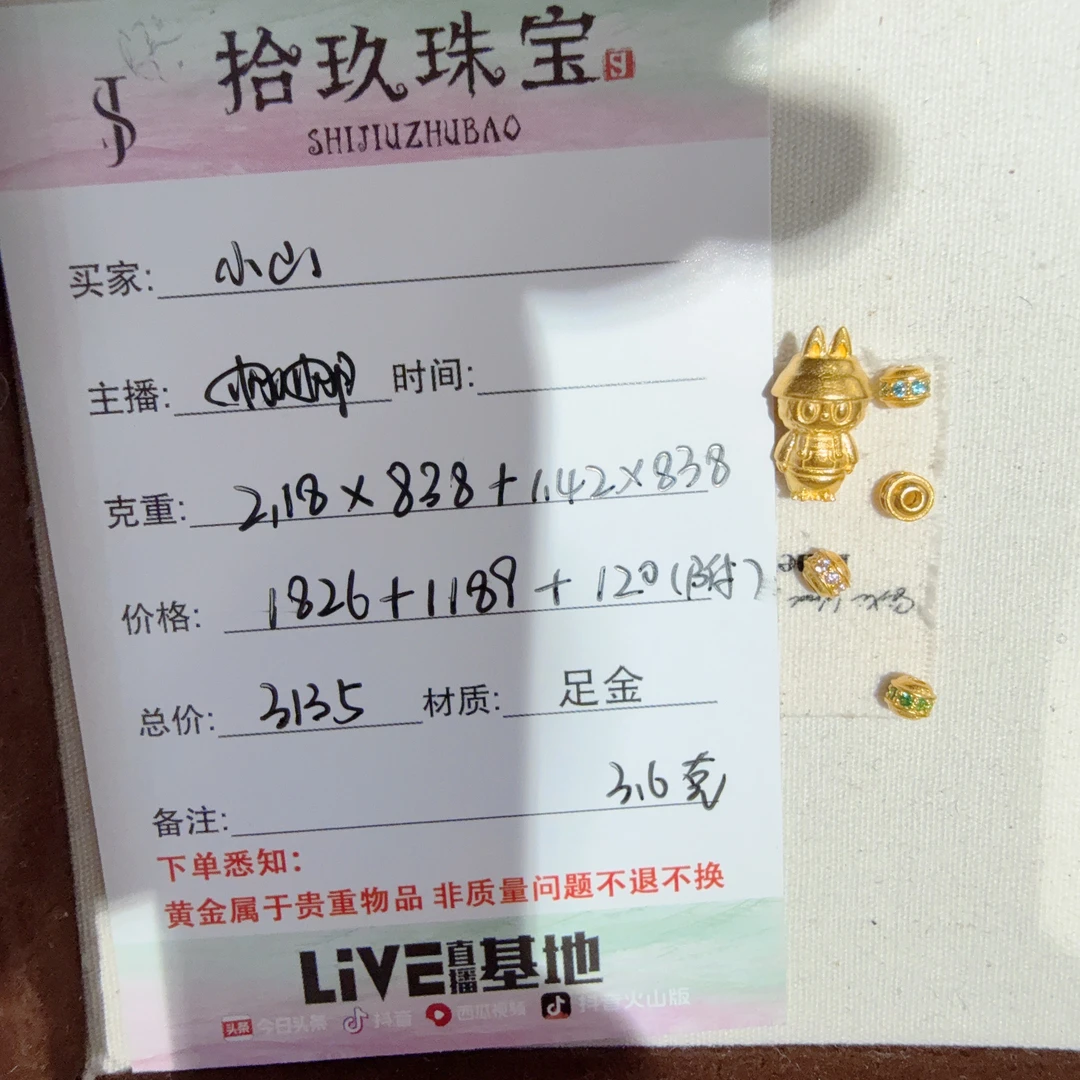 拾玖珠宝
SHIJIUZHUBAO
买家: 小山
主播: 时间:
克重: 2.18×838+1.42×838
价格: 1826+1189+120(附)
总价: 3135 材质: 足金
备注: 3.6克
下单悉知:
黄金属于贵重物品 非质量问题不退不换
LiVE直播基地
头条 今日头条 抖音 西瓜视频 抖音火山版